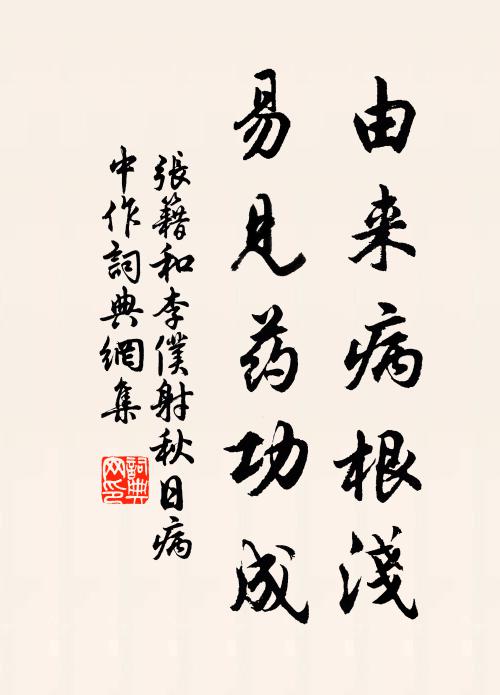 由来病根淺
易見药功成
張籍和李僕射秋日病
中作詞典網集
詞典網印